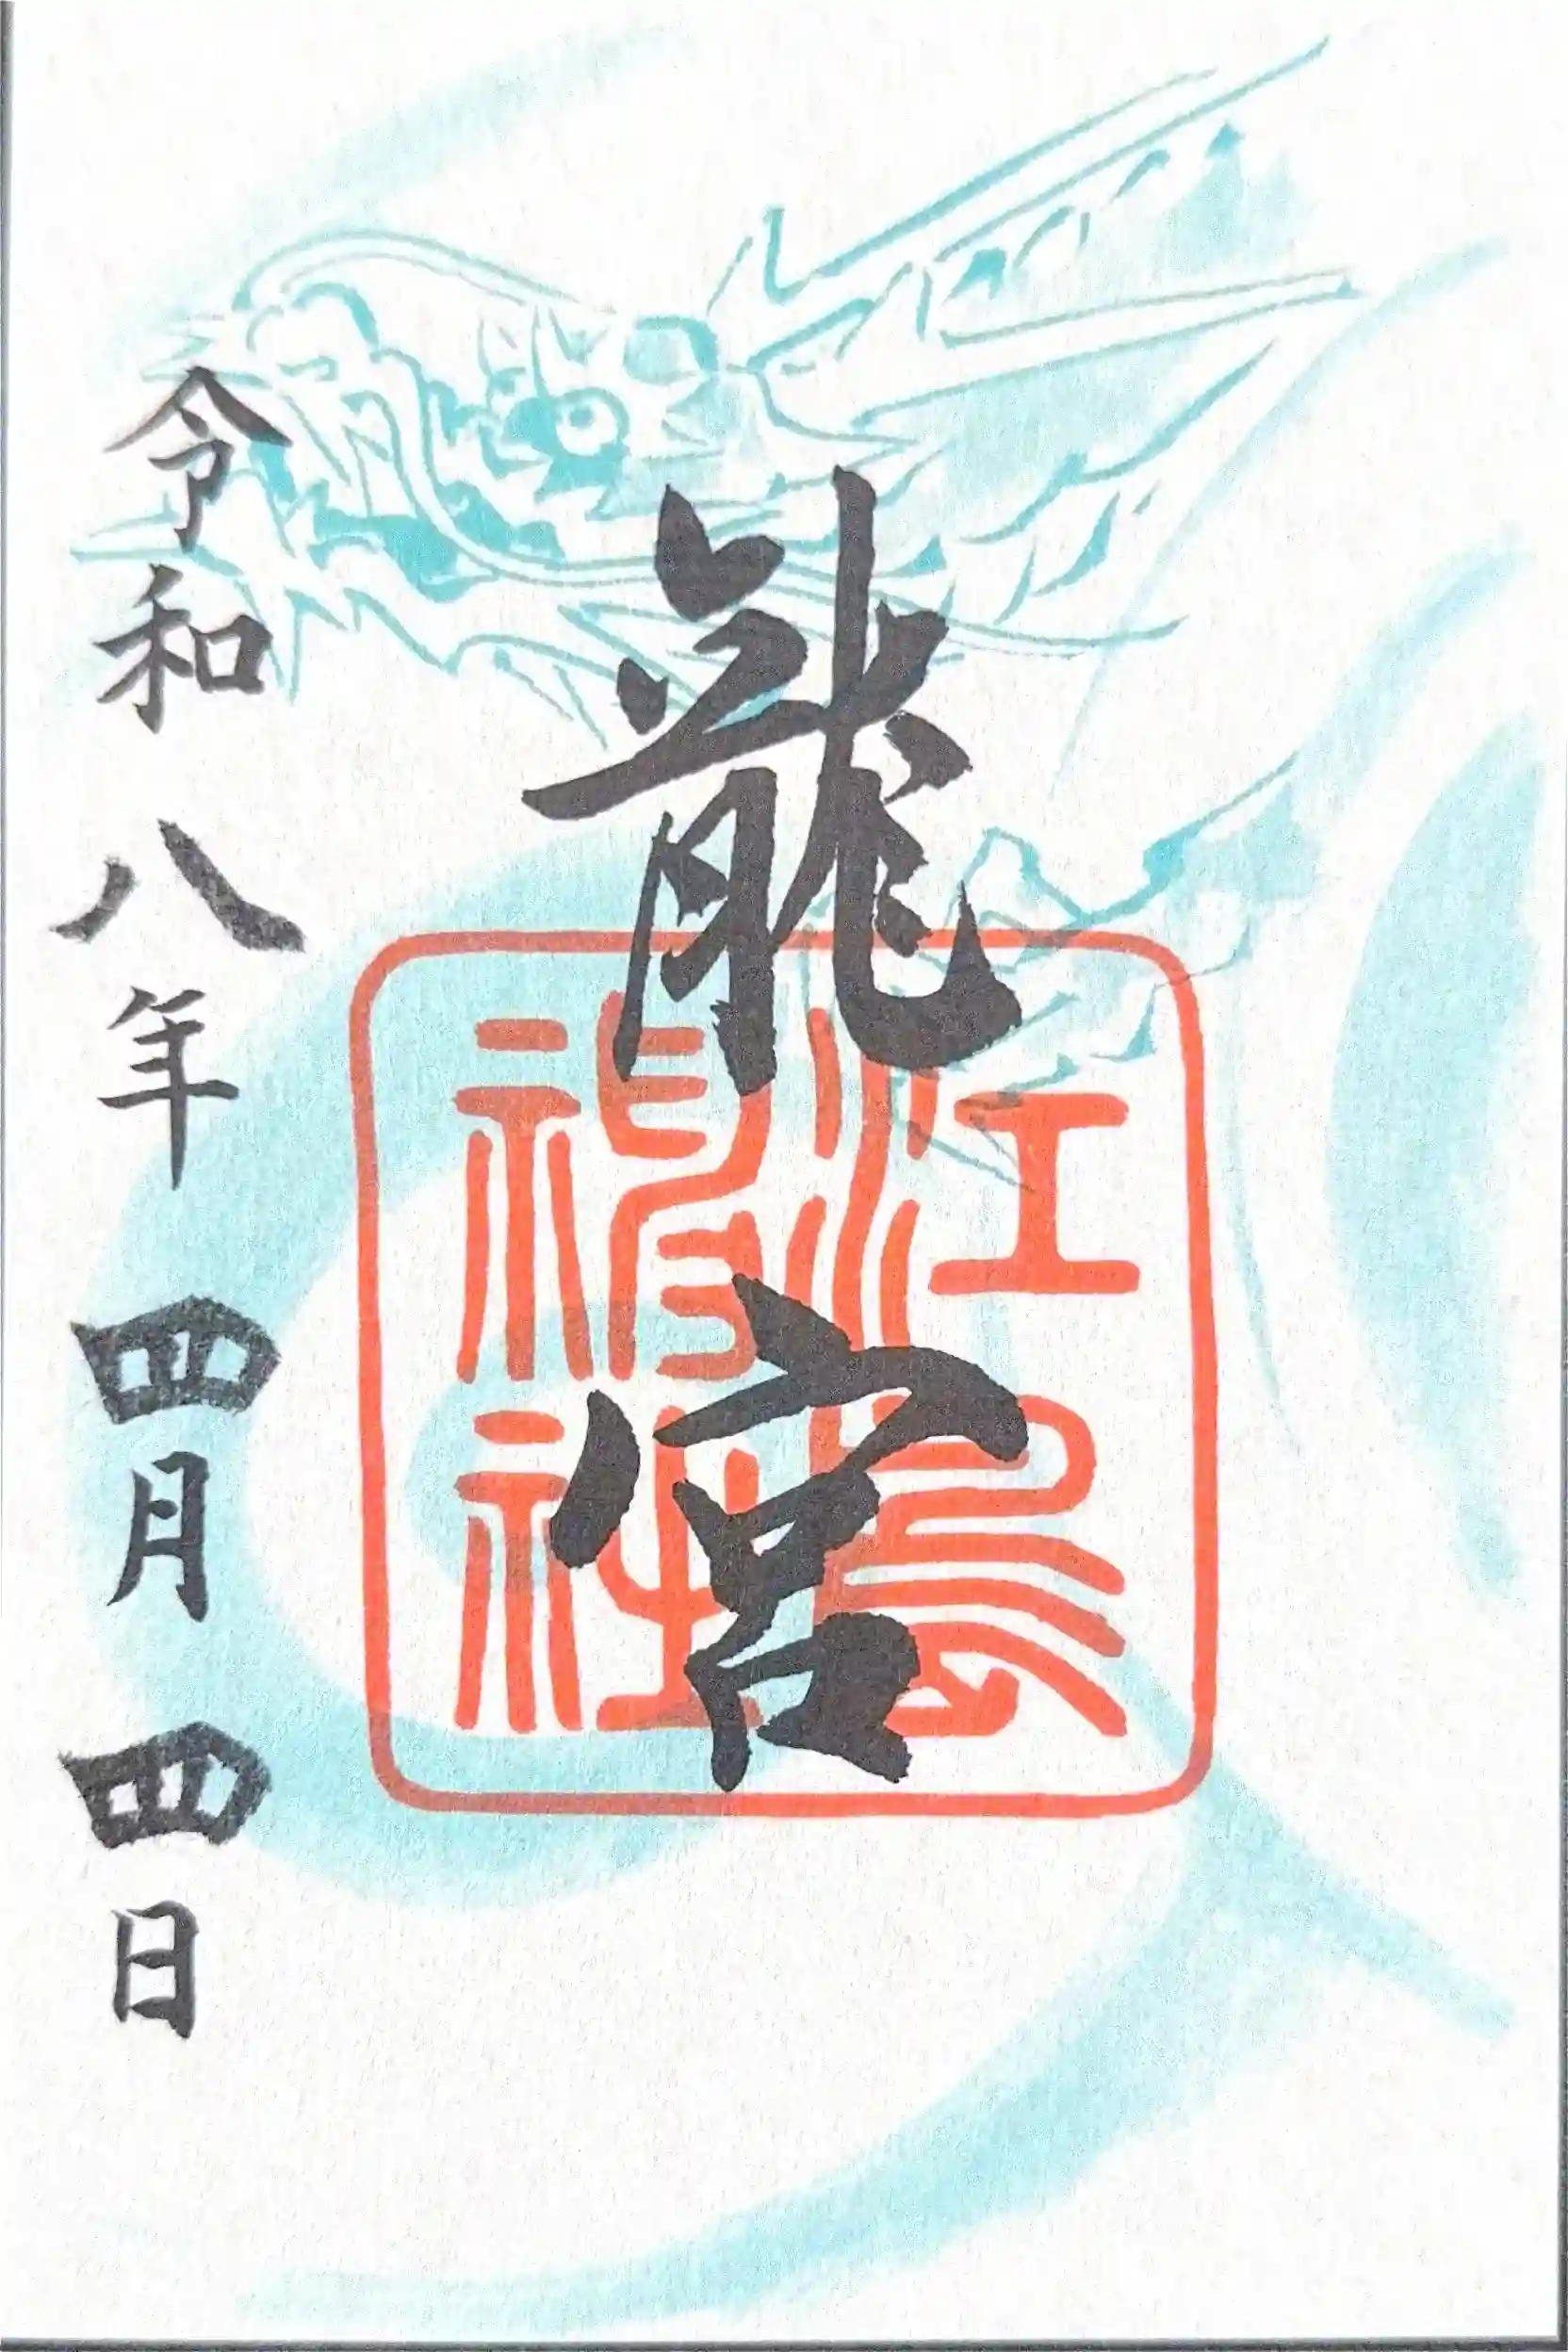 龍宮
江島
神社
令和八年四月四日